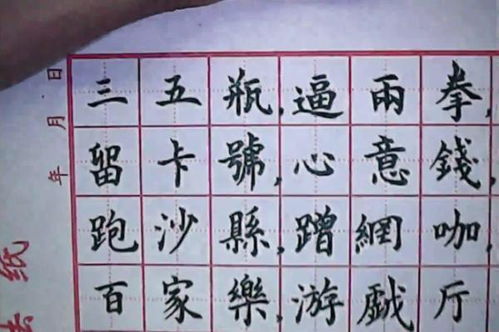 三五瓶,逼兩拳,
留卡號,心意錢,
跑沙縣,蹭網咖,
百家樂,游戲厅
年 月 日
纸